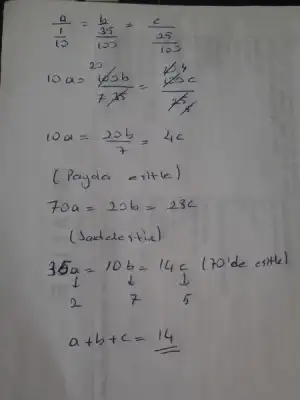 a/(1/10) = b/(35/100) = c/(25/100)
10a = 100b/35 = 100c/25
20 7 4
10a = 20b/7 = 4c
(Payda eşitle)
70a = 20b = 28c
(Sadeleştir)
35a = 10b = 14c (70'de eşitle)
↓ ↓ ↓
2 7 5
a+b+c = 14